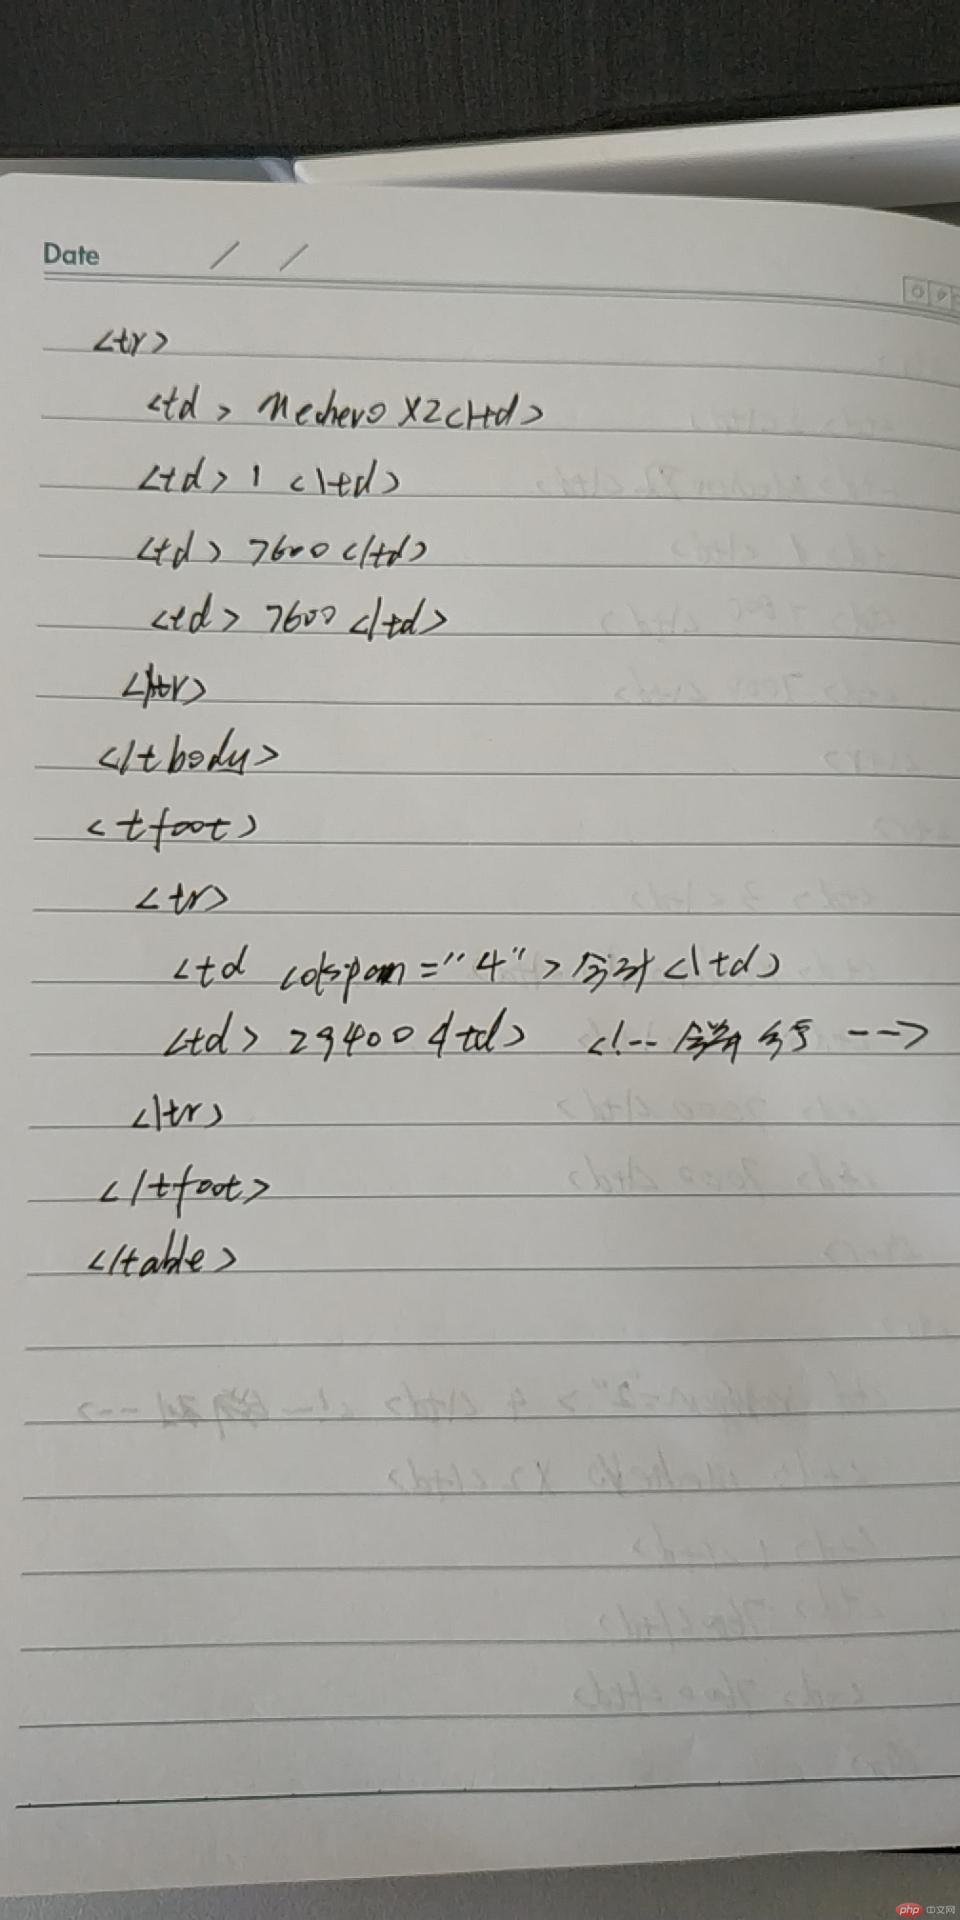 Date / /
<tr>
<td> Mechevo X2</td>
<td> 1 </td>
<td> 7600 </td>
<td> 7600 </td>
</tr>
</tbody>
<tfoot>
<tr>
<td colspan="4"> 合计 </td>
<td> 29400 </td> <!-- 合并 行 -->
</tr>
</tfoot>
</table>
php 中文网